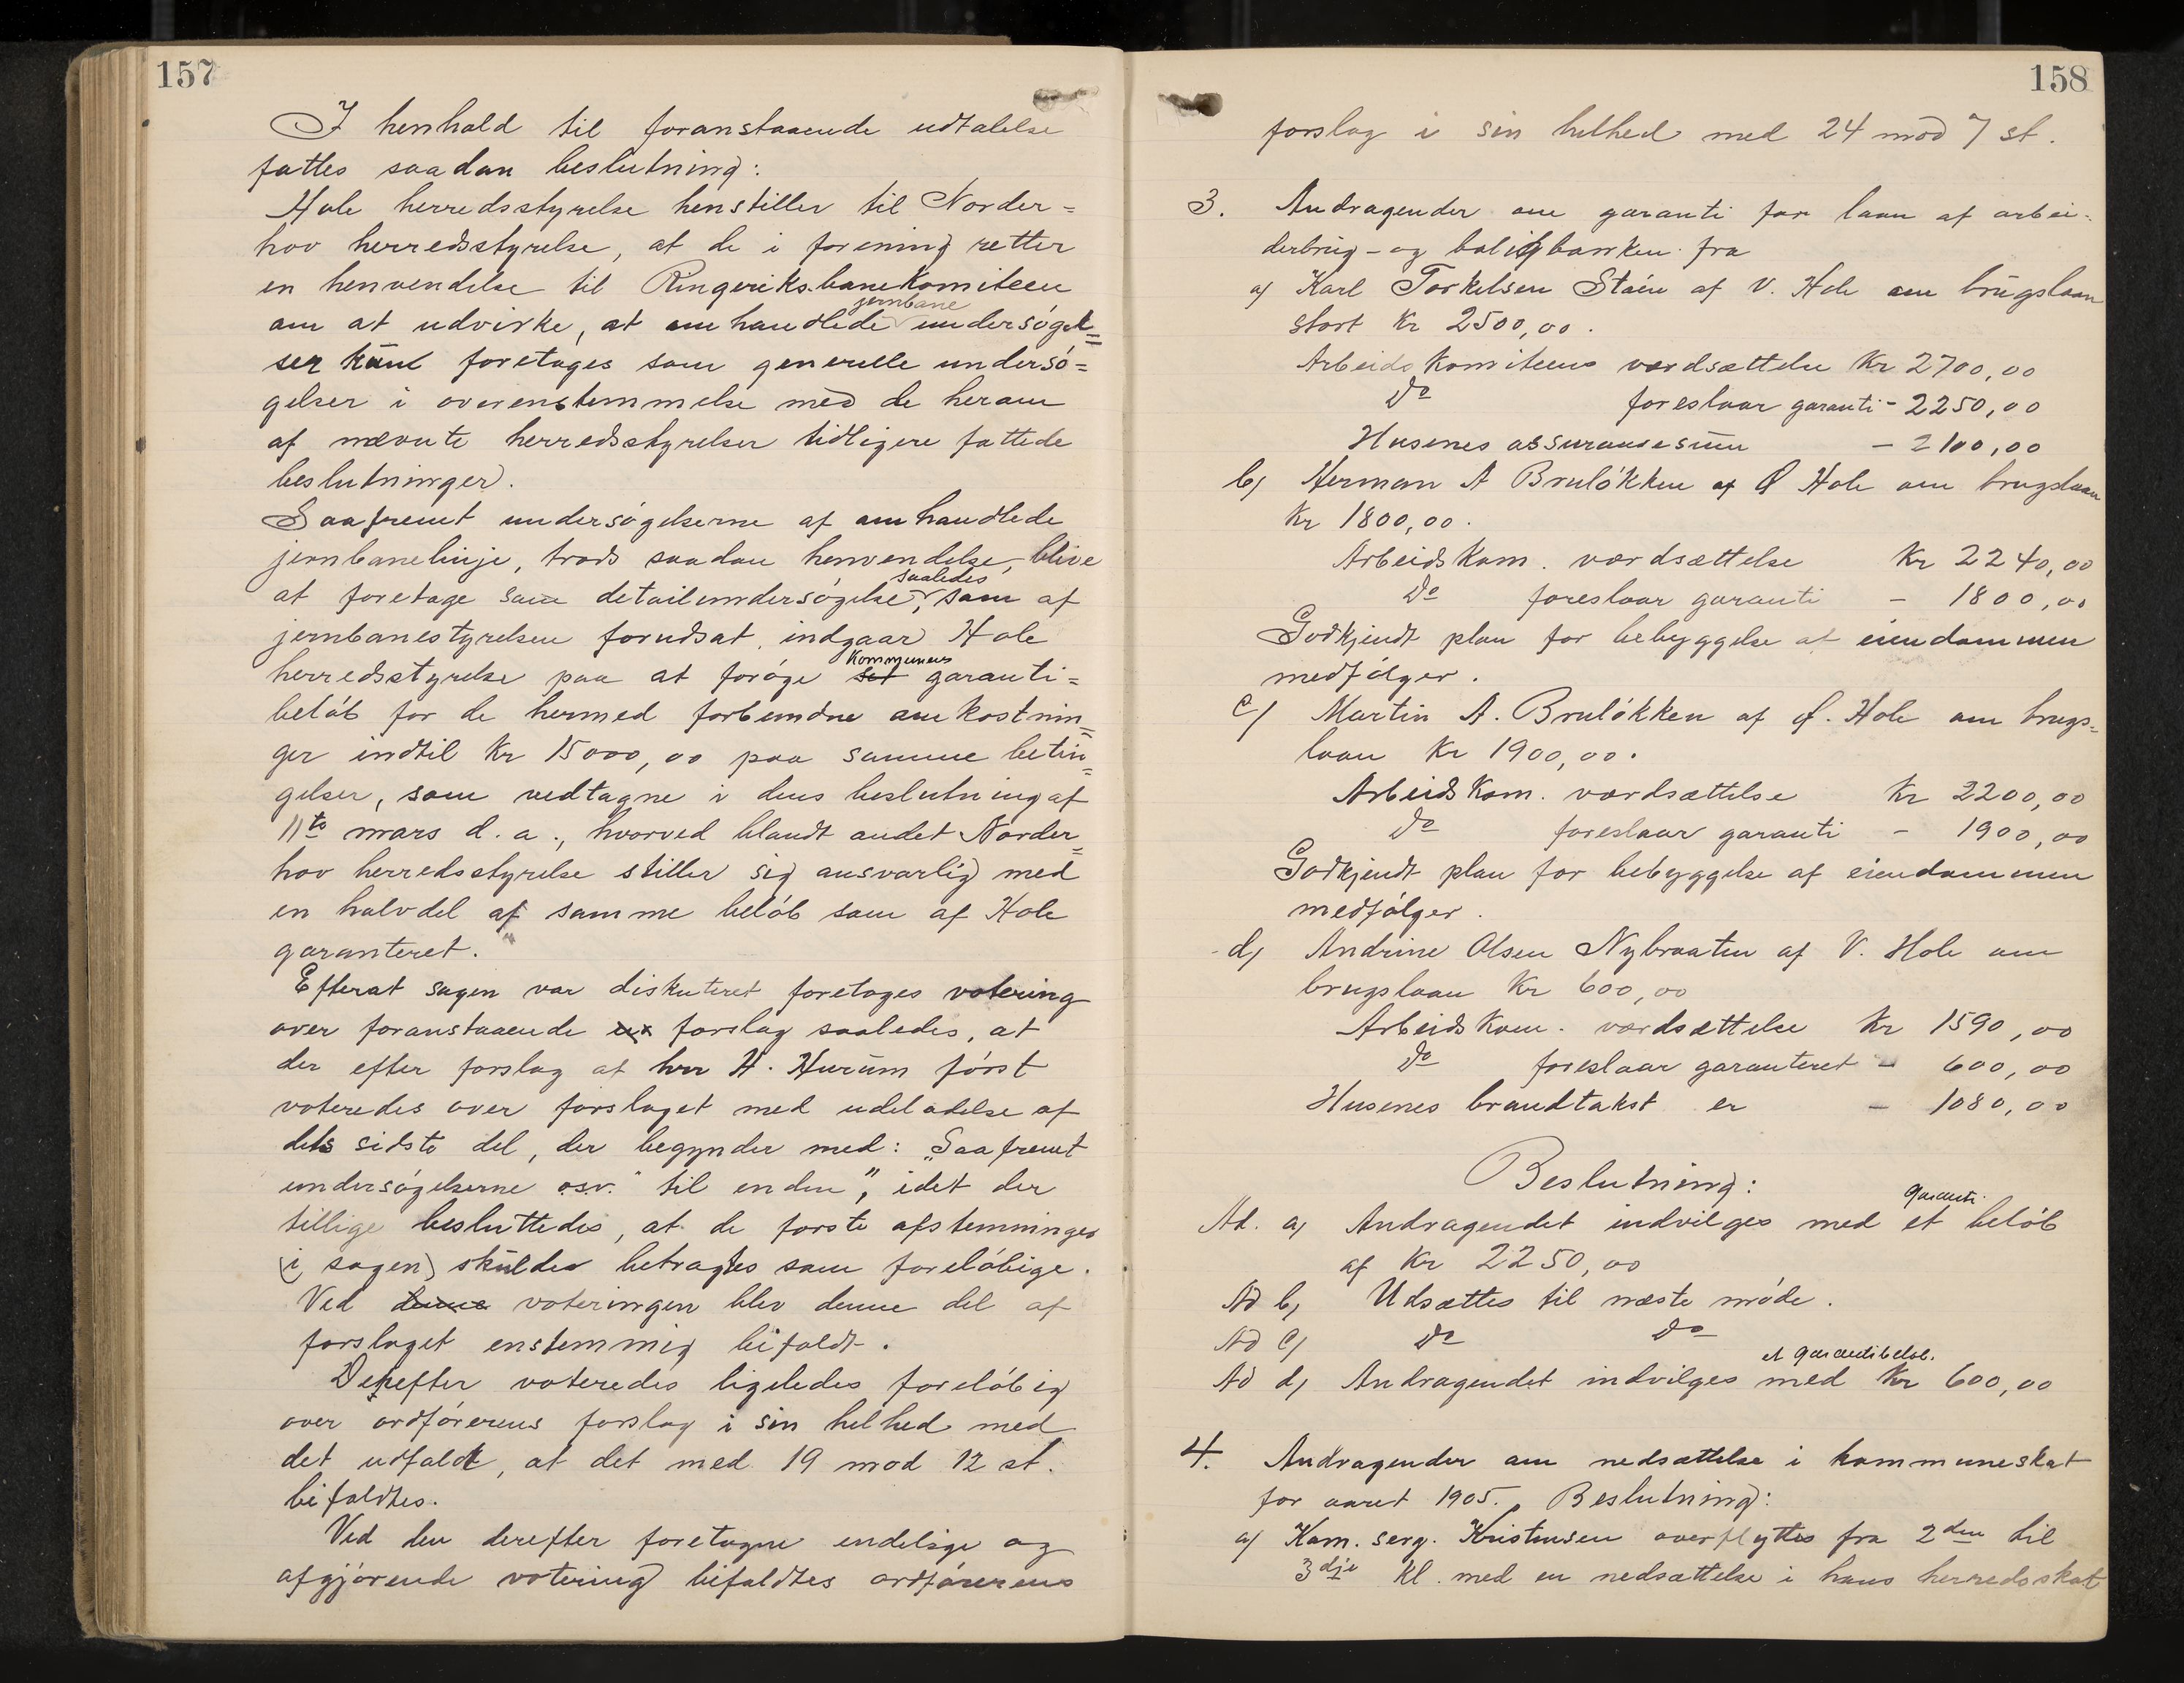 157
I henhold til foranstaaende udtalelse
fattes saadan beslutning:
Hole herredsstyrelse henstiller til Norder=
hov herredsstyrelse, at de i forening retter
en henvendelse til Ringeriksbanekomiteen
jernbane
om at udvirke, at omhandlede undersøgel=
ser kun foretages som generelle undersø=
gelser i overenstemmelse med de herom
af nævnte herredsstyrelser tidligere fattede
beslutninger.
Saafremt undersøgelserne af omhandlede
jernbanelinje, trods saadan henvendelse, blive
saaledes
at foretage som detailundersøgelse, som af
jernbanestyrelsen forudsat, indgaar Hole
kommunens
herredsstyrelse paa at forøge sit garanti=
beløb for de hermed forbundne omkostnin=
ger indtil Kr 15000,00 paa samme betin=
gelser, som vedtagne i dens beslutning af
11te mars d. a., hvorved blandt andet Norder=
hov herredsstyrelse stiller sig ansvarlig med
en halvdel af samme beløb som af Hole
garanteret."
Efterat sagen var diskuteret foretoges votering
over foranstaaende forslag saaledes, at
der efter forslag af hrr H. Hurum først
voteredes over forslaget med udeladelse af
dets sidste del, der begynder med: „Saafremt
undersøgelserne osv." til enden", idet der
tillige besluttedes, at de første afstemninger
(i sagen) skulde betragtes som foreløbige.
Ved denne voteringen blev denne del af
forslaget enstemmig bifaldt.
Derefter voteredes ligeledes foreløbig
over ordførerens forslag i sin helhed med
det udfald, at det med 19 mod 12 st.
bifaldtes.
Ved den derefter foretagne endelige og
afgjørende votering bifaldtes ordførerens
158
forslag i sin helhed med 24 mod 7 st.
3. Andragender om garanti for laan af arbei-
derbrug- og boligbanken fra
a) Karl Torkelsen Støen af V. Hole om brugslaan
stort Kr 2500,00.
Arbeidskomiteens værdsættelse Kr 2700,00
Do foreslaar garanti - 2250,00
Husenes assurancesum - 2100,00
b) Herman A Bruløkken af Ø Hole om brugslaan
Kr 1800,00.
Arbeidskom. værdsættelse Kr 2240,00
Do foreslaar garanti - 1800,00
Godkjendt plan for bebyggelse af eiendommen
medfølger.
c) Martin A. Bruløkken af Ø. Hole om brugs=
laan Kr 1900,00.
Arbeidskom. værdsættelse Kr 2200,00
Do foreslaar garanti - 1900,00
Godkjendt plan for bebyggelse af eiendommen
medfølger.
d) Andrine Olsen Nybraaten af V. Hole om
brugslaan Kr 600,00
Arbeidskom. værdsættelse Kr 1590,00
Do foreslaar garanteret - 600,00
Husenes brandtakst er - 1080,00
Beslutning:
garanti
Ad. a) Andragendet indvilges med et beløb
af Kr 2250,00
Ad b) Udsættes til næste møde.
Ad c) Do Do
et garantibeløb.
Ad d) Andragendet indvilges med Kr 600,00
4. Andragender om nedsættelse i kommuneskat
for aaret 1905. Beslutning:
a) Kom. serg. Kristensen overflyttes fra 2den til
3dje kl. med en nedsættelse i hans herredsskat